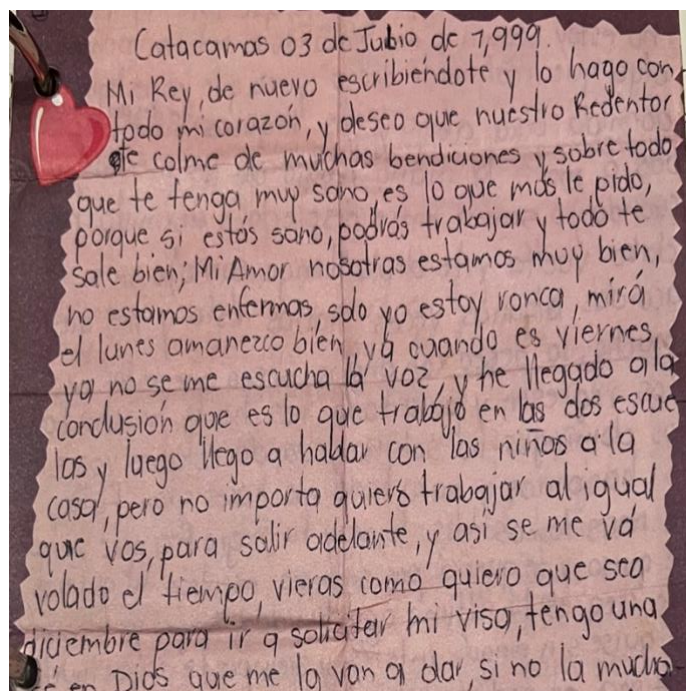 Catacamas 03 de Jubio de 1,999.
Mi Rey, de nuevo escribiéndote y lo hago con
todo mi corazón, y deseo que nuestro Redentor
te colme de muchas bendiciones y sobre todo
que te tenga muy sano, es lo que más le pido,
porque si estás sano, podrás trabajar y todo te
sale bien; Mi Amor nosotras estamos muy bien,
no estamos enfermas, solo yo estoy ronca, mirá
el lunes amanezco bien, ya cuando es viernes,
ya no se me escucha la voz, y he llegado a la
conclusión que es lo que trabajo en las dos escue
las y luego llego a hablar con las niñas a la
casa, pero no importa quiero trabajar al igual
que vos, para salir adelante, y así se me vá
volado el tiempo, vieras como quiero que sea
diciembre para ir a solicitar mi visa, tengo una
fé en Dios que me la van a dar, si no la mucha